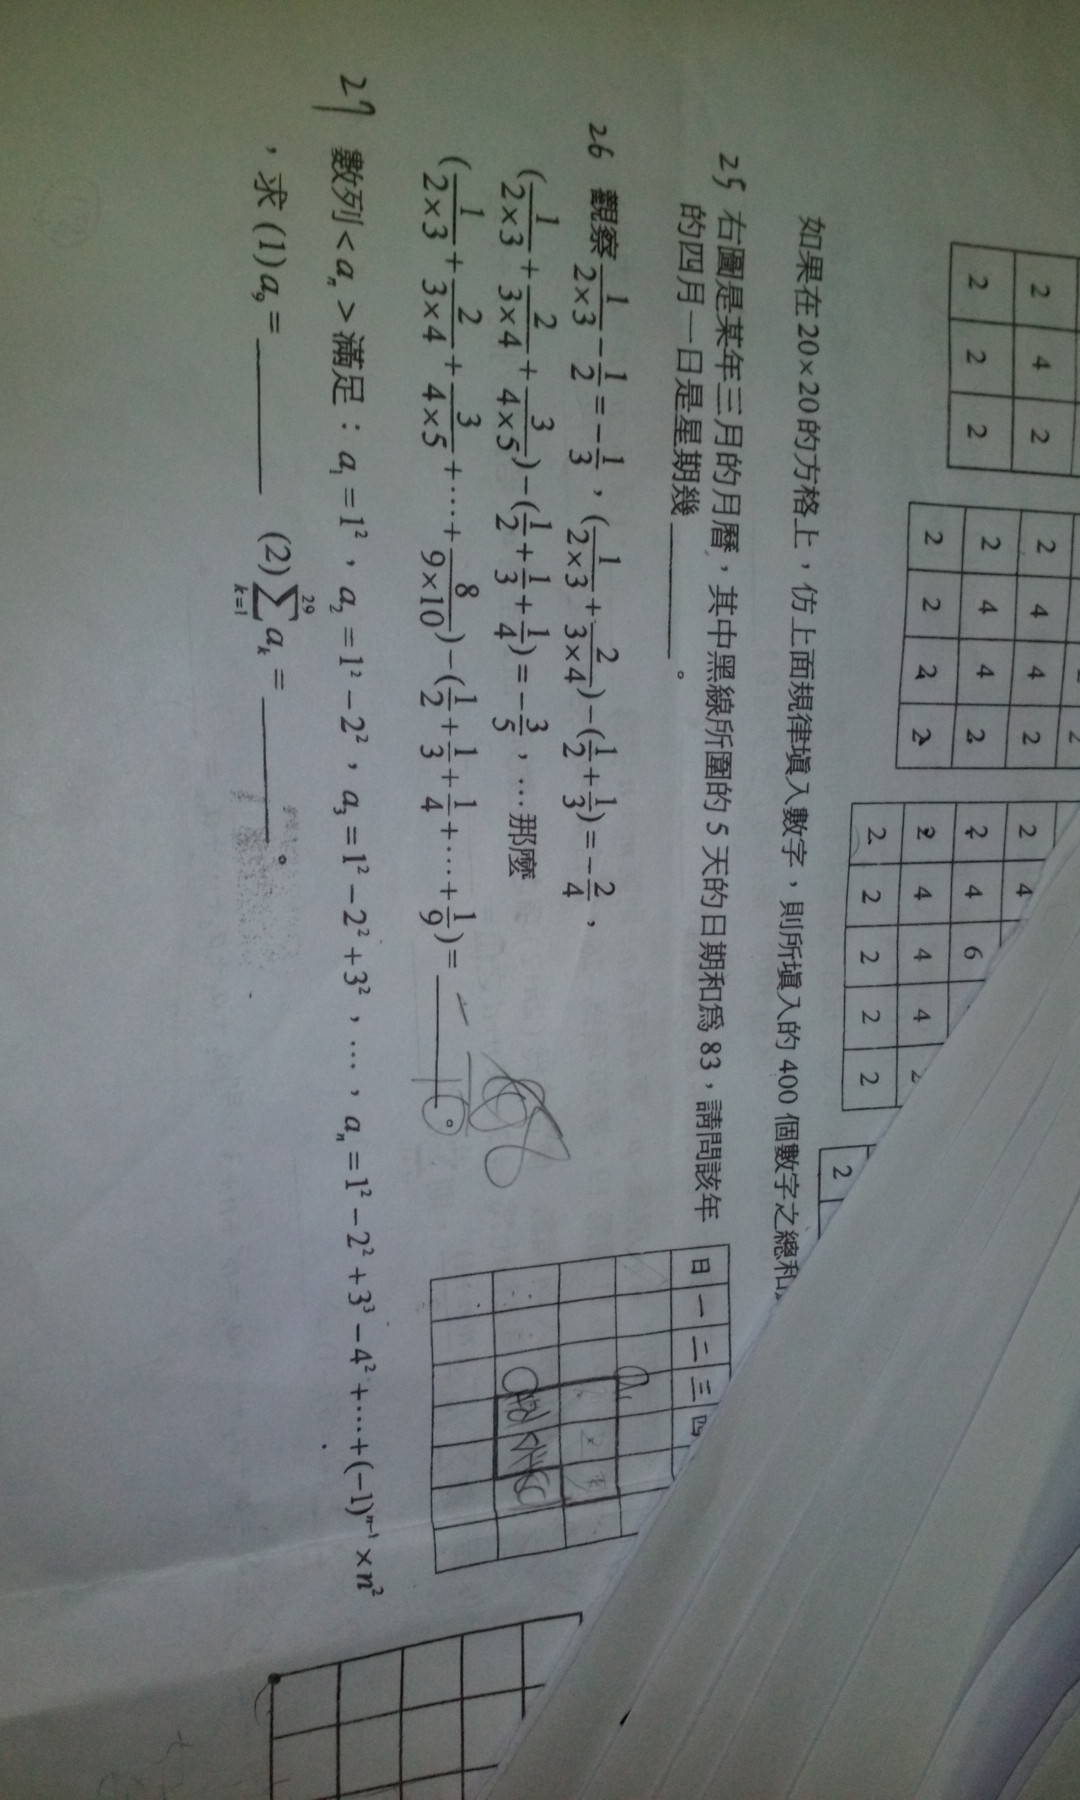 2 4 2
2 2 2
2 4 4 2
2 4 4 2
2 2 2 2
2 4
2 4 6
2 4 4 4 2
2 2 2 2 2
2
如果在20×20的方格上，仿上面規律填入數字，則所填入的400個數字之總和
25 右圖是某年三月的月曆，其中黑線所圍的5天的日期和為83，請問該年
的四月一日是星期幾______。
日 一 二 三 四
26 觀察 1/(2×3) − 1/2 = −1/3，(1/(2×3) + 2/(3×4)) − (1/2 + 1/3) = −2/4，
(1/(2×3) + 2/(3×4) + 3/(4×5)) − (1/2 + 1/3 + 1/4) = −3/5，…那麼
(1/(2×3) + 2/(3×4) + 3/(4×5) + … + 8/(9×10)) − (1/2 + 1/3 + 1/4 + … + 1/9) = ______。 − 8/10
27 數列<aₙ>滿足：a₁ = 1²，a₂ = 1² − 2²，a₃ = 1² − 2² + 3²，…，aₙ = 1² − 2² + 3³ − 4² + … + (−1)ⁿ⁻¹ × n²
，求(1) a₉ = ______ (2) ∑_{k=1}^{29} aₖ = ______。